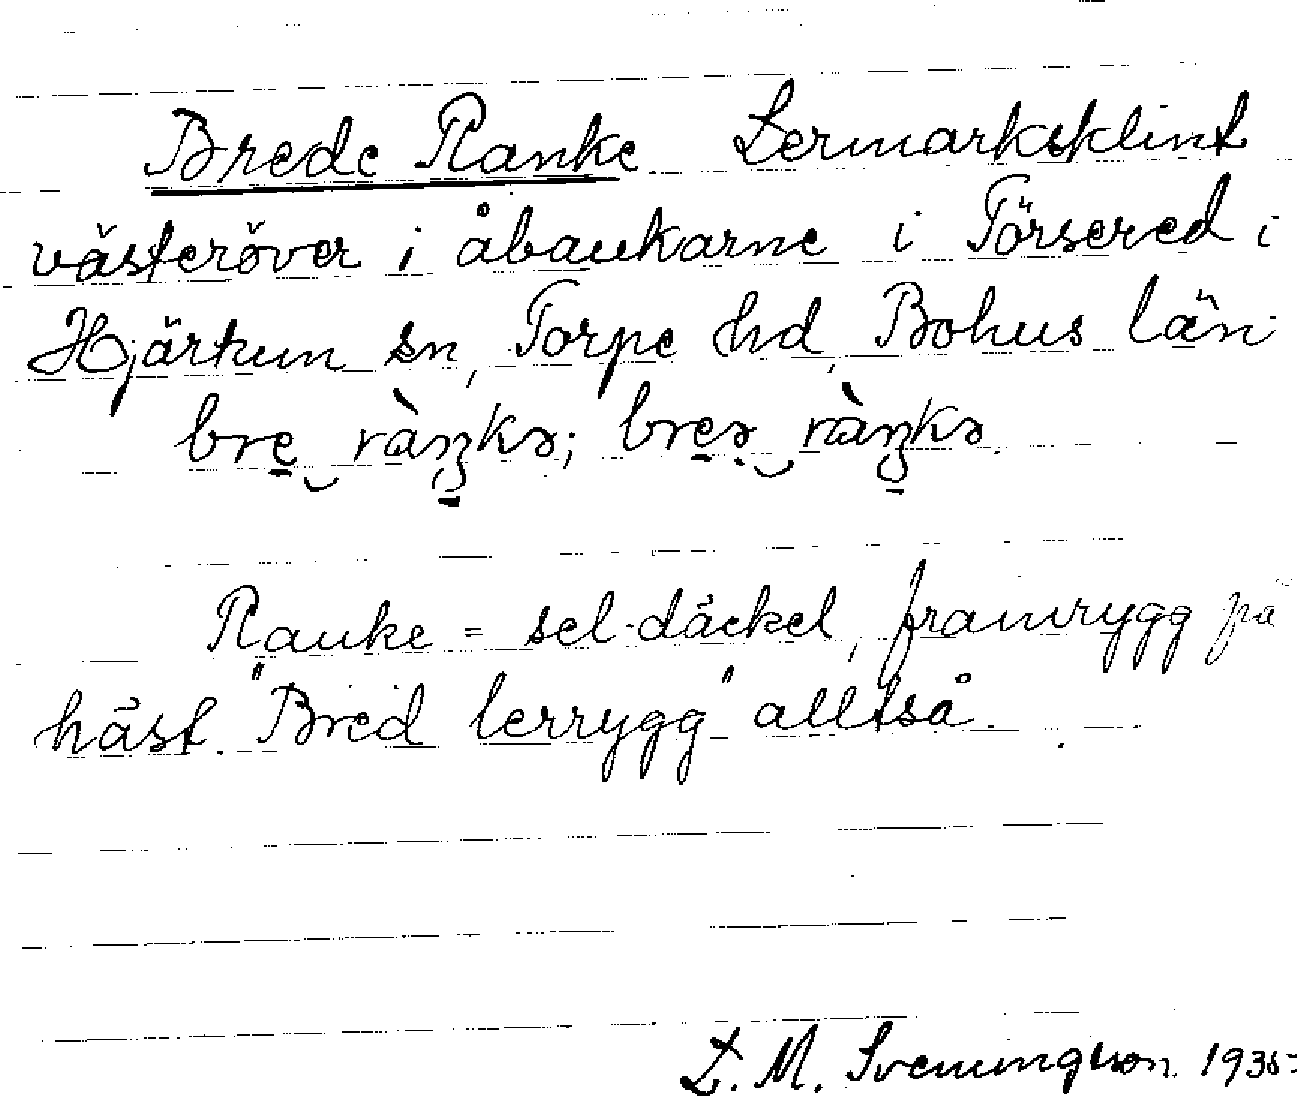 Brede Ranke Lermarksklint
västeröver i åbaukarne i Törsered i
Hjärtum sn, Torpe hd, Bohus län
bre̠‿ràŋkə; bre̠ə̣‿ràŋkə.
Ranke = sel-däckel, framrygg på
häst. "Bred lerrygg" alltså.
L. M. Svenungsson